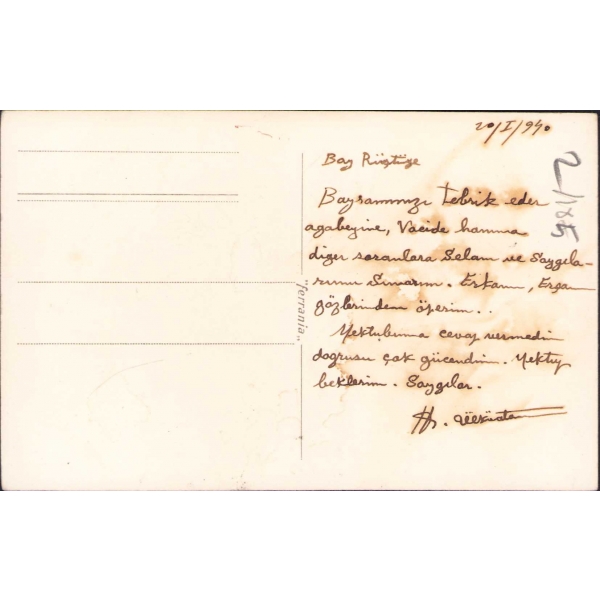 20/I/940
Bay Rüştüye
Bayramınızı tebrik eder
agabeyine, Vacide hanıma
diğer soranlara Selam ve Saygıla-
rımı Sunarım. Erkanın,
gözlerinden öperim..
Mektubuma cevap vermedin
doğrusu çok gücendim. Mektup
beklerim. Saygılar.
"Ferrania"